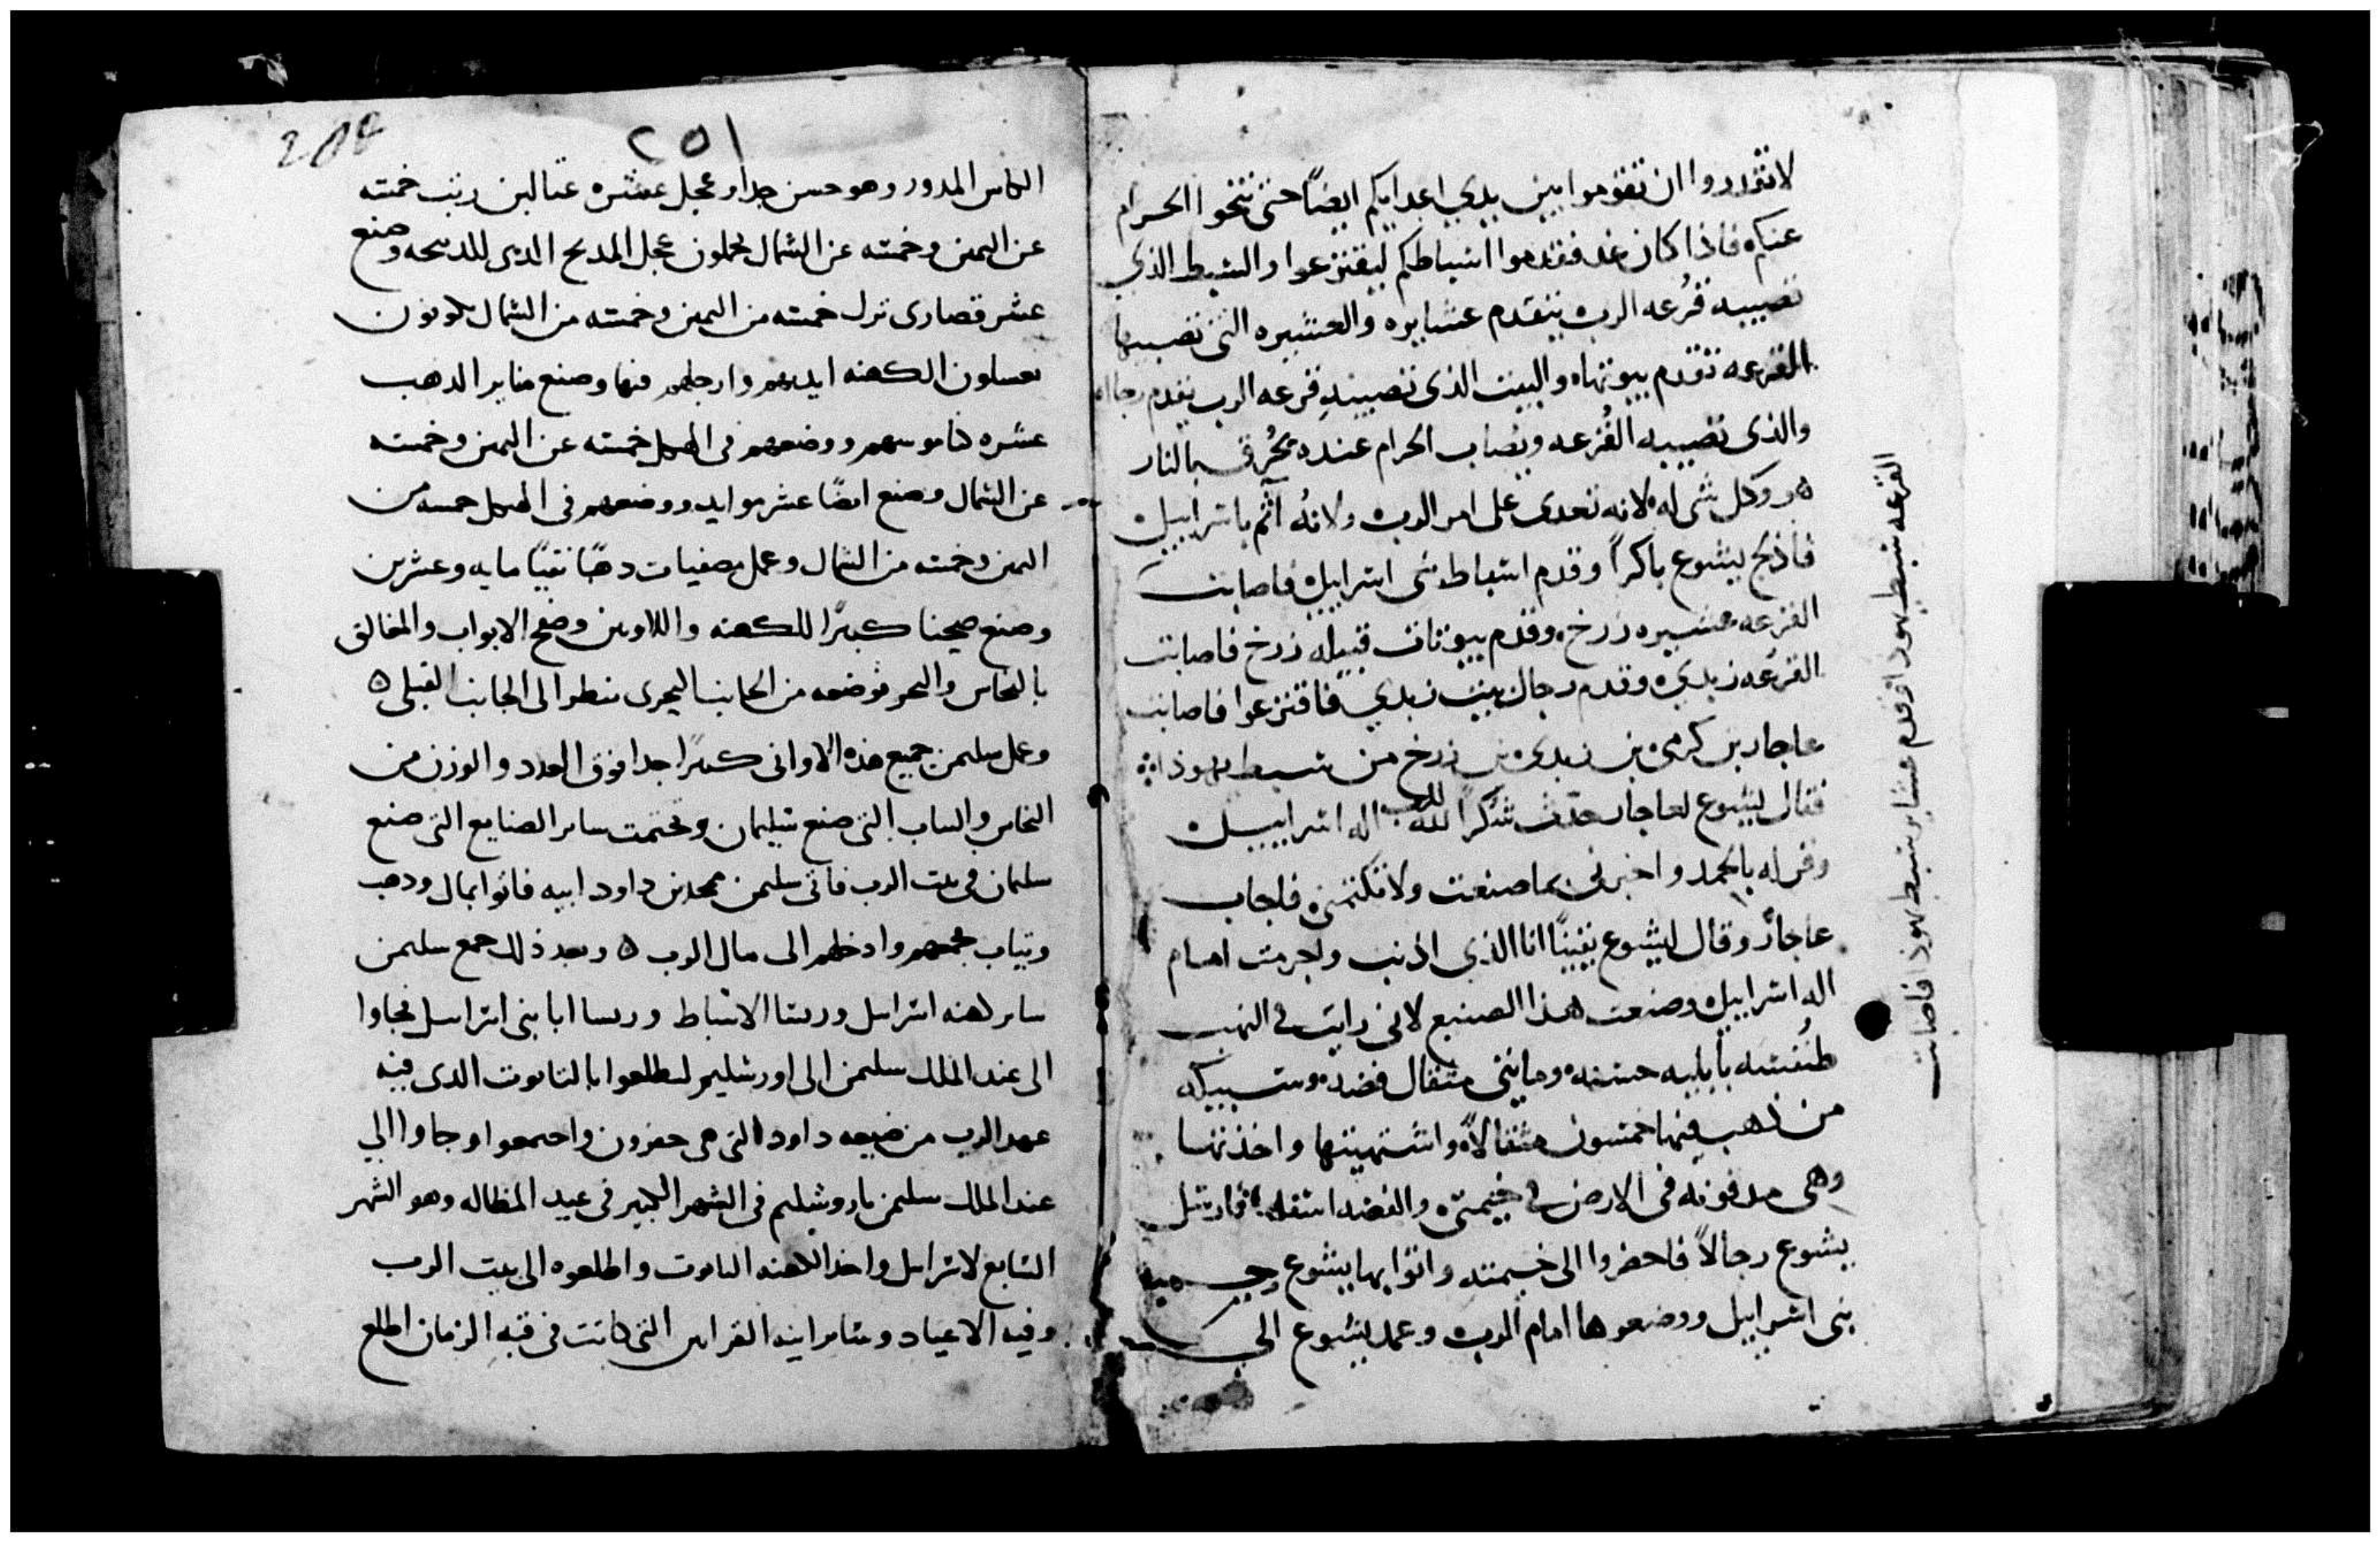 لا تقدروا ان تقوموا بين يدي اعدايكم ايضًا حتى تنحوا الحرام
عنكم فاذا كان غد فقدموا اسباطكم ليقترعوا والسبط الذي
تصيبه قُرعه الرب يتقدم عشايره والعشيره التى تصيبها
القرعه تقدم بيوتها والبيت الذى تصيبه قرعه الرب يقدم رجاله
والذى تصيبه القُرعه ويُصاب الحرام عنده يُحرق بالنار
هو وكل شى له لانه تعدى على امر الرب ولانه اثم باسراييل
فادلج يشوع باكرًا وقدم اسباط بنى اسراييل فاصابت
القرعه عشيره زرخ وقدم بيوتات قبيله زرخ فاصابت
القرعه زبدي وقدم رجال بيت زبدي فاقترعوا فاصابت
عاجار بن كرمى بن زبدى بن زرخ من سبط يهوذا
فقال يشوع لعاجار حدث شكرًا لله الرب اله اسراييل
وقر له بالحمد واخبرنى بما صنعت ولا تكتمنى فاجاب
عاجار وقال ليشوع يقينًا انا الذي اذنب واجرمت امام
اله اسراييل وصنعت هذا الصنيع لانى رايت فى النهب
طنفسه بابليه حسنه ومايتى مثقال فضه وسبيكه
من ذهب فيها خمسون مثقالًا واشتهيتها واخذتها
وهى مدفونه فى الارض فى خيمتى والفضه اسفلها فارسل
يشوع رجالًا فاحضروا الى خيمته واتوا بها يشوع وجميع
بنى اسراييل ووضعوها امام الرب وعمد يشوع الى
القرعه سبط يهوذا وقدم عشاير سبط يهوذا فاصابت
٢٥١
النحاس المدور وهو حسن جدا وعجل عشره عتالين رتب خمسه
عن اليمين وخمسه عن الشمال يحملون عجل المدبح الدى للدبيحه وصنع
عشر قصارى نزل خمسه من اليمين وخمسه من الشمال يكونون
يغسلون الكهنه ايديهم وارجلهم فيها وصنع منابر الدهب
عشره كناموسهم ووضعهم فى الهيكل خمسه عن اليمين وخمسه
عن الشمال وصنع ايضًا عشر موايد ووضعهم فى الهيكل خمسه من
اليمين وخمسه من الشمال وعمل مصفيات دهبًا نقيًا مايه وعشرين
وصنع صحينا كبيرًا للكهنه واللاويين وصفح الابواب والمغالق
بالنحاس والبحر فوضعه من الجانب البحرى ينظر الى الجانب القبلى ه
وعمل سليمن جميع هذه الاوانى كثيرًا جدا فوق العدد والوزن من
النحاس والباب التى صنع سليمان وختمت ساير الصنايع التى صنع
سليمان فى بيت الرب فاتى سليمن بمحد بن داود ابيه فاتوا بمال ودهب
وتياب فجمعهم وادخلهم الى مال الرب ه وبعد ذلك جمع سليمن
ساير كهنه اسراييل وريسا الاسباط وريسا ابا بنى اسراييل فجاوا
الى عند الملك سليمن الى اورشليم ليطلعوا بالتابوت الدى فيه
عهد الرب من ضيعه داود التى هى حفرون واجتمعوا وجاوا الي
عند الملك سليمن باروشليم فى الشهر الكبير فى عيد المظاله وهو الشهر
السابع لاسراييل واخد الكهنه التابوت واطلعوه الى بيت الرب
وفيه الاعياد وساير انيه القرابين التى كانت فى قبه الزمان اطلع